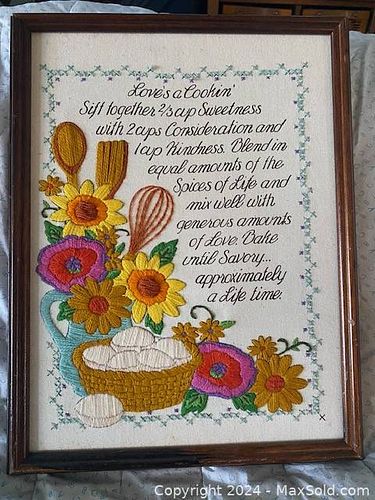 Love's a Cookin'
Sift together 2/3 cup Sweetness
with 2 cups Consideration and
1 cup Kindness. Blend in
equal amounts of the
Spices of Life and
mix well with
generous amounts
of Love. Bake
until Savory...
approximately
a Life time.
Copyright 2024 - MaxSold.com